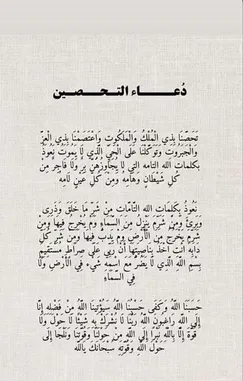 دُعَاء التحصين
تَحَصَّنَا بِذِي الْمُلْكُ وَالْمَلَكُوتِ وَاعْتَصَمْنَا بِذِي الْعِزِّ
وَالْجَبَرُوتِ وَتَوَكَّلْنَا عَلَى الْحَيِّ الَّذِي لَا يَمُوتُ نَعُوذُ
بكلمات الله التامه التي لا يجاوزهن بر ولا فاجر من
كل شيطان وهامه ومن كل عين لامه
نَعُوذُ بِكَلِمَاتِ اللهِ التَّامَّاتِ مِنْ شَرِّ مَا خَلَقَ وَذَرَى
وَمِنْ شَرِّ يَنْزِلُ مِنَ السَّمَاءِ وَمَ يَخْرُجُ فِيهَا وَمِنْ
شَرِّ يَخْرُجُ مِنَ الْأَرْضِ وَمَ فِيهَا وَمِنْ شَرِّ كُلِّ
دَابَةٍ أَنْتَ آخِذٌ بِنَاصِيَتِهَا أَنَّ رَبِّي عَلَى صِرَاطٍ مُسْتَقِيمٍ
بِسْمِ اللَّهِ الَّذِي لَا يَضُرُّ مَعَ اسْمِهِ شَيْءٌ فِي الْأَرْضِ وَلَا
فِي السَّمَاءِ
حَسْبُنَا اللَّهُ وَكَفَى حَسْبُنَا اللَّهُ سَيُؤْتِينَا اللَّهُ مِنْ فَضْلِهِ إِنَّا
إِلَى اللَّهِ رَاغِبُونَ اللَّهُ رَبُّنَا لَا نُشْرِكُ بِهِ شَيْئًا لَا حَوْلَ وَلَا
قُوَّةَ إِلَّا بِاللَّهِ إِلَى اللَّهِ مِنْ حَوْلِنَا وَقُوَّتِنَا وَنَلْجَأُ إِلَى
حَوْلِ اللَّهِ وَقُوَّتِهِ سُبْحَانَكَ يَاللَّهِ